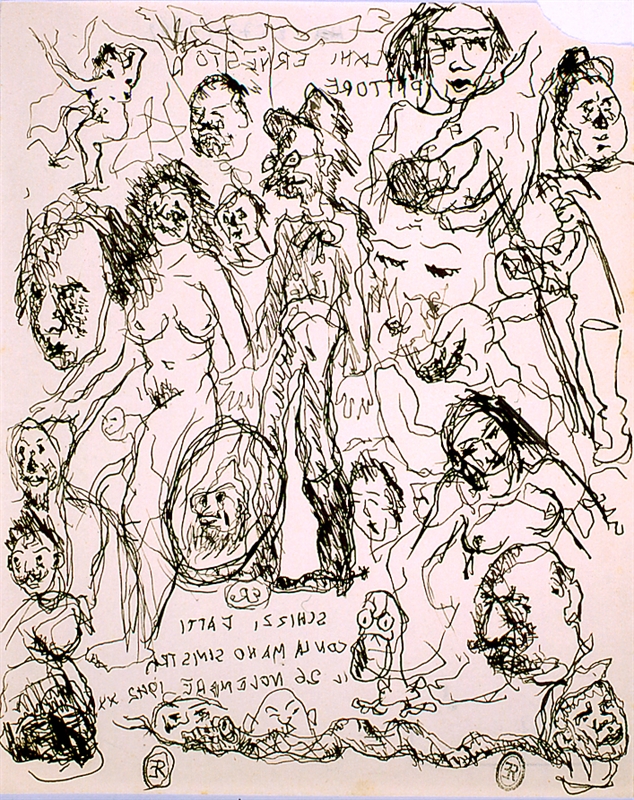 ERNESTO
PITTORE
SCHIZZI FATTI
CON LA MANO SINISTRA
IL 26 NOVEMBRE 1942 XX